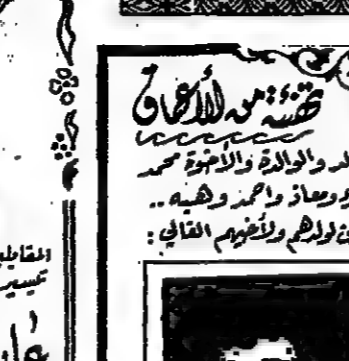 تهنئة من الأعماق
والوالدة والأخوة محمد
ومعاذ واحمد وهبه ..
لولدهم ولأخيهم الغالي :
المقابلين
تيسير